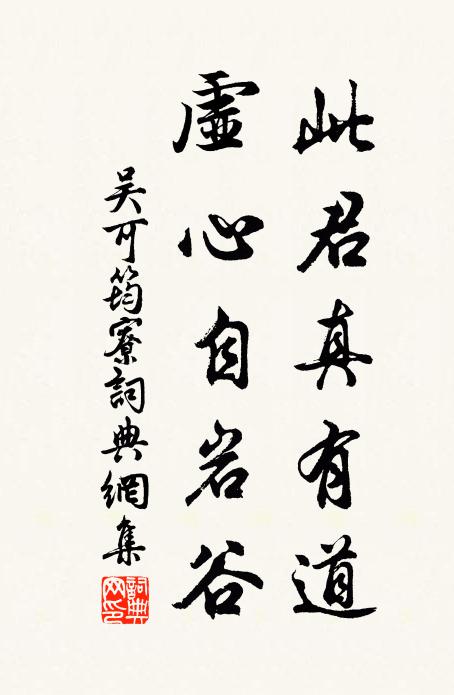 此君真有道
虛心自岩谷
吴可筠寮詞典網集
詞典网印